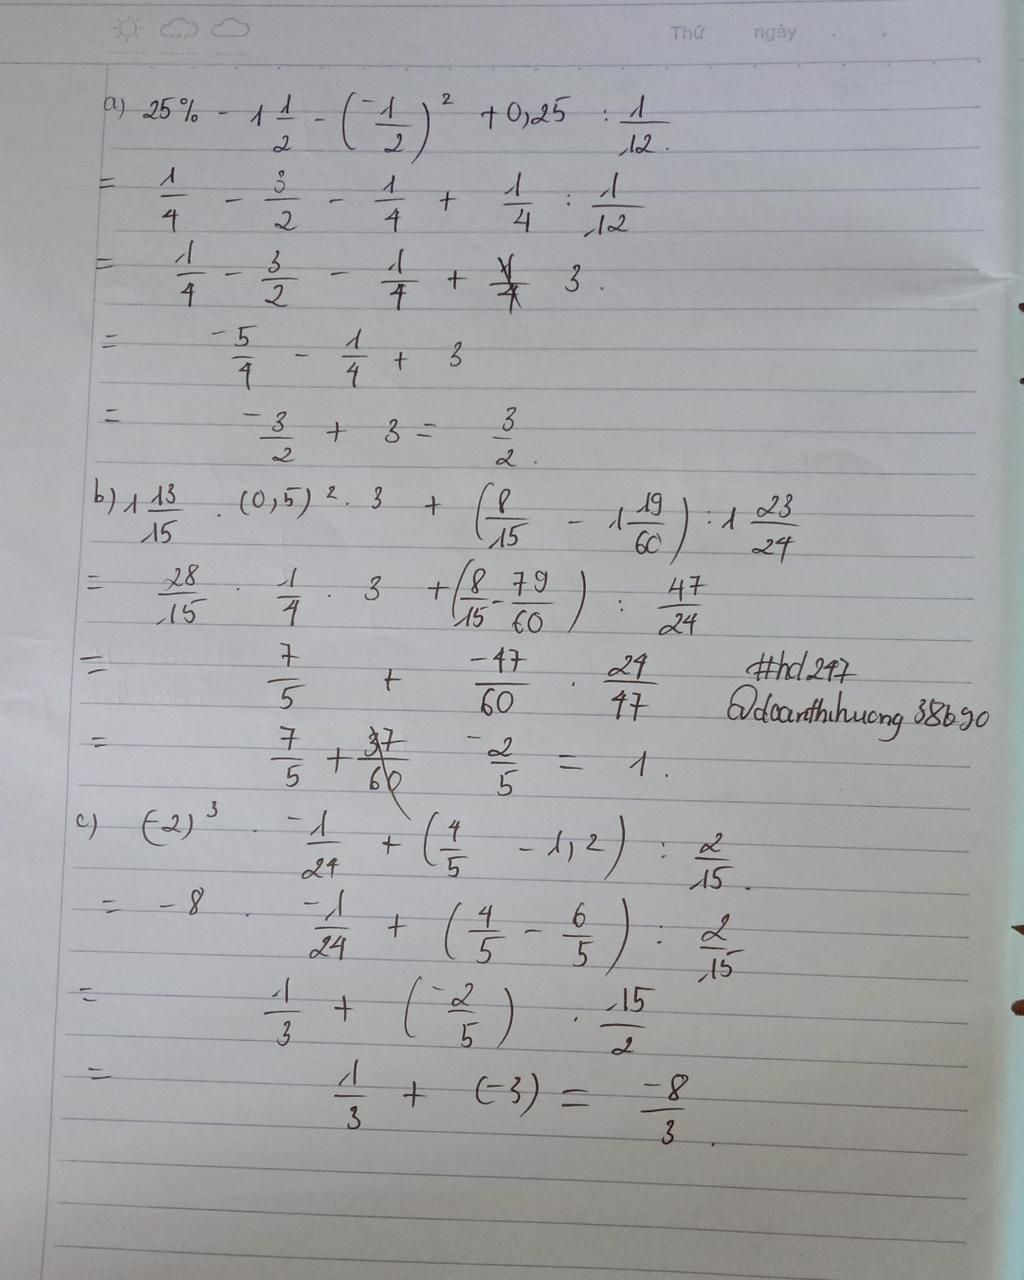 Thứ ngày
a) 25% - 1 1/2 - (-1/2)² + 0,25 : 1/12.
= 1/4 - 3/2 - 1/4 + 1/4 : 1/12
= 1/4 - 3/2 - 1/4 + 3.
= -5/4 - 1/4 + 3
= -3/2 + 3 = 3/2.
b) 1 13/15 . (0,5)² . 3 + (8/15 - 1 19/60) : 1 23/24
= 28/15 . 1/4 . 3 + (8/15 - 79/60) : 47/24
= 7/5 + -47/60 . 24/47
#hd247
@doanthihuong38b90
= 7/5 + -2/5 = 1.
c) (-2)³ . -1/24 + (4/5 - 1,2) : 2/15.
= -8 . -1/24 + (4/5 - 6/5) : 2/15
= 1/3 + (-2/5) . 15/2
= 1/3 + (-3) = -8/3.